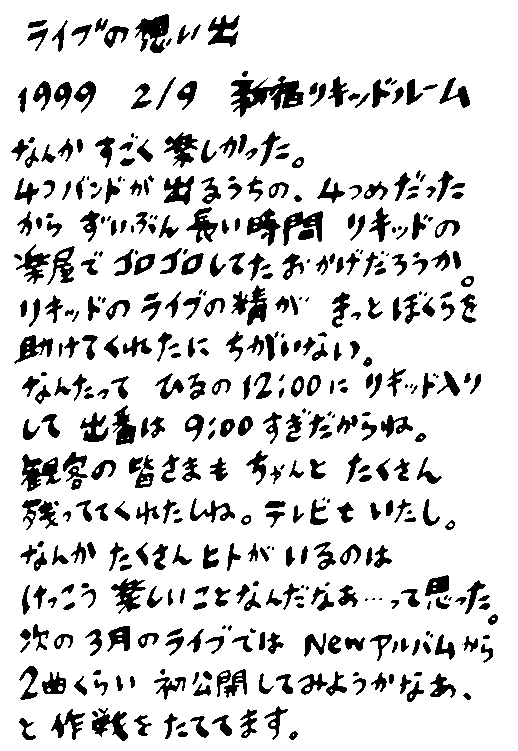 ライブの想い出
1999 2/9 新宿リキッドルーム
なんか すごく 楽しかった。
4つバンドが 出るうちの、4つめだった
から ずいぶん 長い時間 リキッドの
楽屋で ゴロゴロしてた おかげだろうか。
リキッドの ライブの精が きっと ぼくらを
助けてくれたに ちがいない。
なんたって ひるの12:00に リキッド入り
して 出番は 9:00すぎだからね。
観客の 皆さまも ちゃんと たくさん
残っててくれたしね。テレビもいたし。
なんか たくさんヒトが いるのは
けっこう 楽しいことなんだなぁ…って思った。
次の 3月のライブでは Newアルバムから
2曲くらい 初公開してみようかなぁ、
と 作戦をたててます。